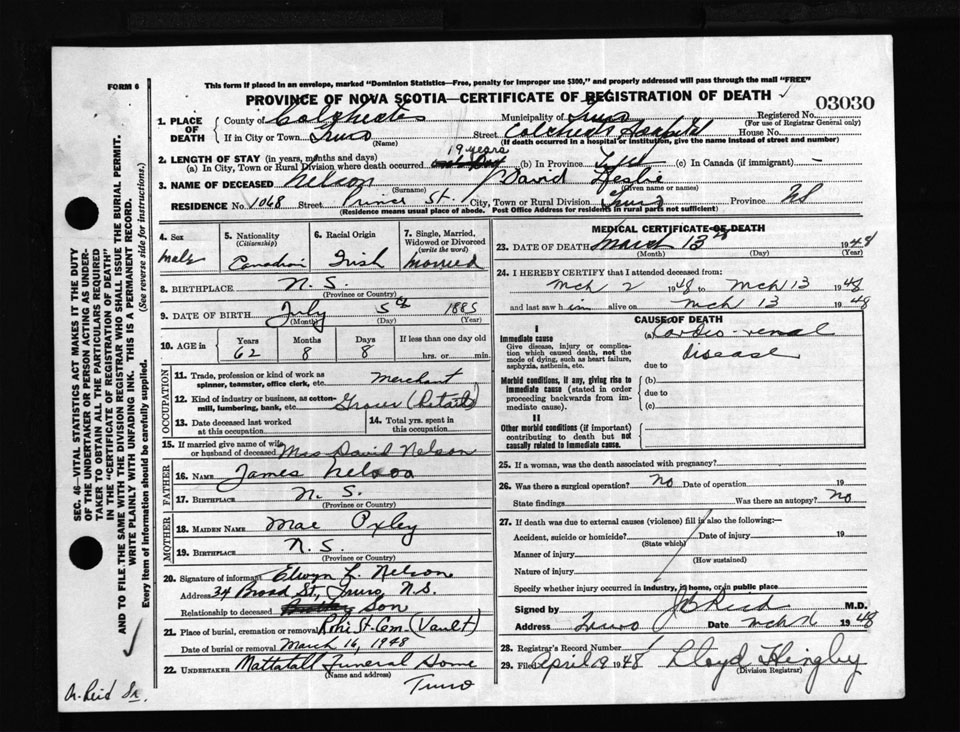 FORM 6
This form if placed in an envelope, marked "Dominion Statistics—Free, penalty for improper use $300," and properly addressed will pass through the mail "FREE"
PROVINCE OF NOVA SCOTIA—CERTIFICATE OF REGISTRATION OF DEATH
03030
1. PLACE OF DEATH
County of Colchester Municipality of Truro Registered No.
(For use of Registrar General only)
If in City or Town Truro Street Colchester Hospital House No.
(Name) (If death occurred in a hospital or institution, give the name instead of street and number)
2. LENGTH OF STAY (in years, months and days) 19 years
(a) In City, Town or Rural Division where death occurred (b) In Province (c) In Canada (if immigrant) –
3. NAME OF DECEASED Nelson David Leslie
(Surname) (Given name or names)
RESIDENCE No. 1068 Street Prince St. City, Town or Rural Division Truro Province NS
(Residence means usual place of abode. Post Office Address for residents in rural parts not sufficient)
4. Sex Male
5. Nationality (Citizenship) Canadian
6. Racial Origin Irish
7. Single, Married, Widowed or Divorced (write the word) Married
8. BIRTHPLACE N. S.
(Province or Country)
9. DATE OF BIRTH July 5th 1885
(Month) (Day) (Year)
10. AGE in Years Months Days If less than one day old
62 8 8 hrs. or min.
OCCUPATION
11. Trade, profession or kind of work as spinner, teamster, office clerk, etc. Merchant
12. Kind of industry or business, as cotton-mill, lumbering, bank, etc. Grocer (Retail)
13. Date deceased last worked at this occupation
14. Total yrs. spent in this occupation
15. If married give name of wife or husband of deceased Mrs David Nelson
FATHER
16. NAME James Nelson
17. BIRTHPLACE N. S.
(Province or Country)
MOTHER
18. MAIDEN NAME Mae Oxley
19. BIRTHPLACE N. S.
(Province or Country)
20. Signature of informant Elwyn L. Nelson
Address 34 Broad St, Truro N.S.
Relationship to deceased Son
21. Place of burial, cremation or removal Robie St. Cem (Vault)
Date of burial or removal March 16, 1948
22. UNDERTAKER Mattatall Funeral Home
(Name and address)
Truro
MEDICAL CERTIFICATE OF DEATH
23. DATE OF DEATH March 13th 1948
(Month) (Day) (Year)
24. I HEREBY CERTIFY that I attended deceased from:
Mch 2 1948 to Mch 13 1948
and last saw him alive on Mch 13 1948
CAUSE OF DEATH
I
Immediate cause
Give disease, injury or complication which caused death, not the mode of dying, such as heart failure, asphyxia, asthenia, etc.
(a) Cardio-renal
disease
due to
Morbid conditions, if any, giving rise to immediate cause (stated in order proceeding backwards from immediate cause).
(b)
due to
(c)
II
Other morbid conditions (if important) contributing to death but not causally related to immediate cause.
25. If a woman, was the death associated with pregnancy?
26. Was there a surgical operation? No Date of operation 19
State findings Was there an autopsy? No
27. If death was due to external causes (violence) fill in also the following:—
Accident, suicide or homicide? Date of injury 19
(State which)
Manner of injury
(How sustained)
Nature of injury
Specify whether injury occurred in industry, in home, or in public place
Signed by M.D.
Address Truro Date Mch 16 1948
28. Registrar's Record Number
29. Filed April 9 1948 Lloyd
(Division Registrar)
SEC. 46—VITAL STATISTICS ACT MAKES IT THE DUTY
OF THE UNDERTAKER OR PERSON ACTING AS UNDER-
TAKER TO OBTAIN ALL THE PARTICULARS REQUIRED
IN THE "CERTIFICATE OF REGISTRATION OF DEATH"
AND TO FILE THE SAME WITH THE DIVISION REGISTRAR WHO SHALL ISSUE THE BURIAL PERMIT.
WRITE PLAINLY WITH UNFADING INK. THIS IS A PERMANENT RECORD.
Every item of information should be carefully supplied. (See reverse side for instructions.)